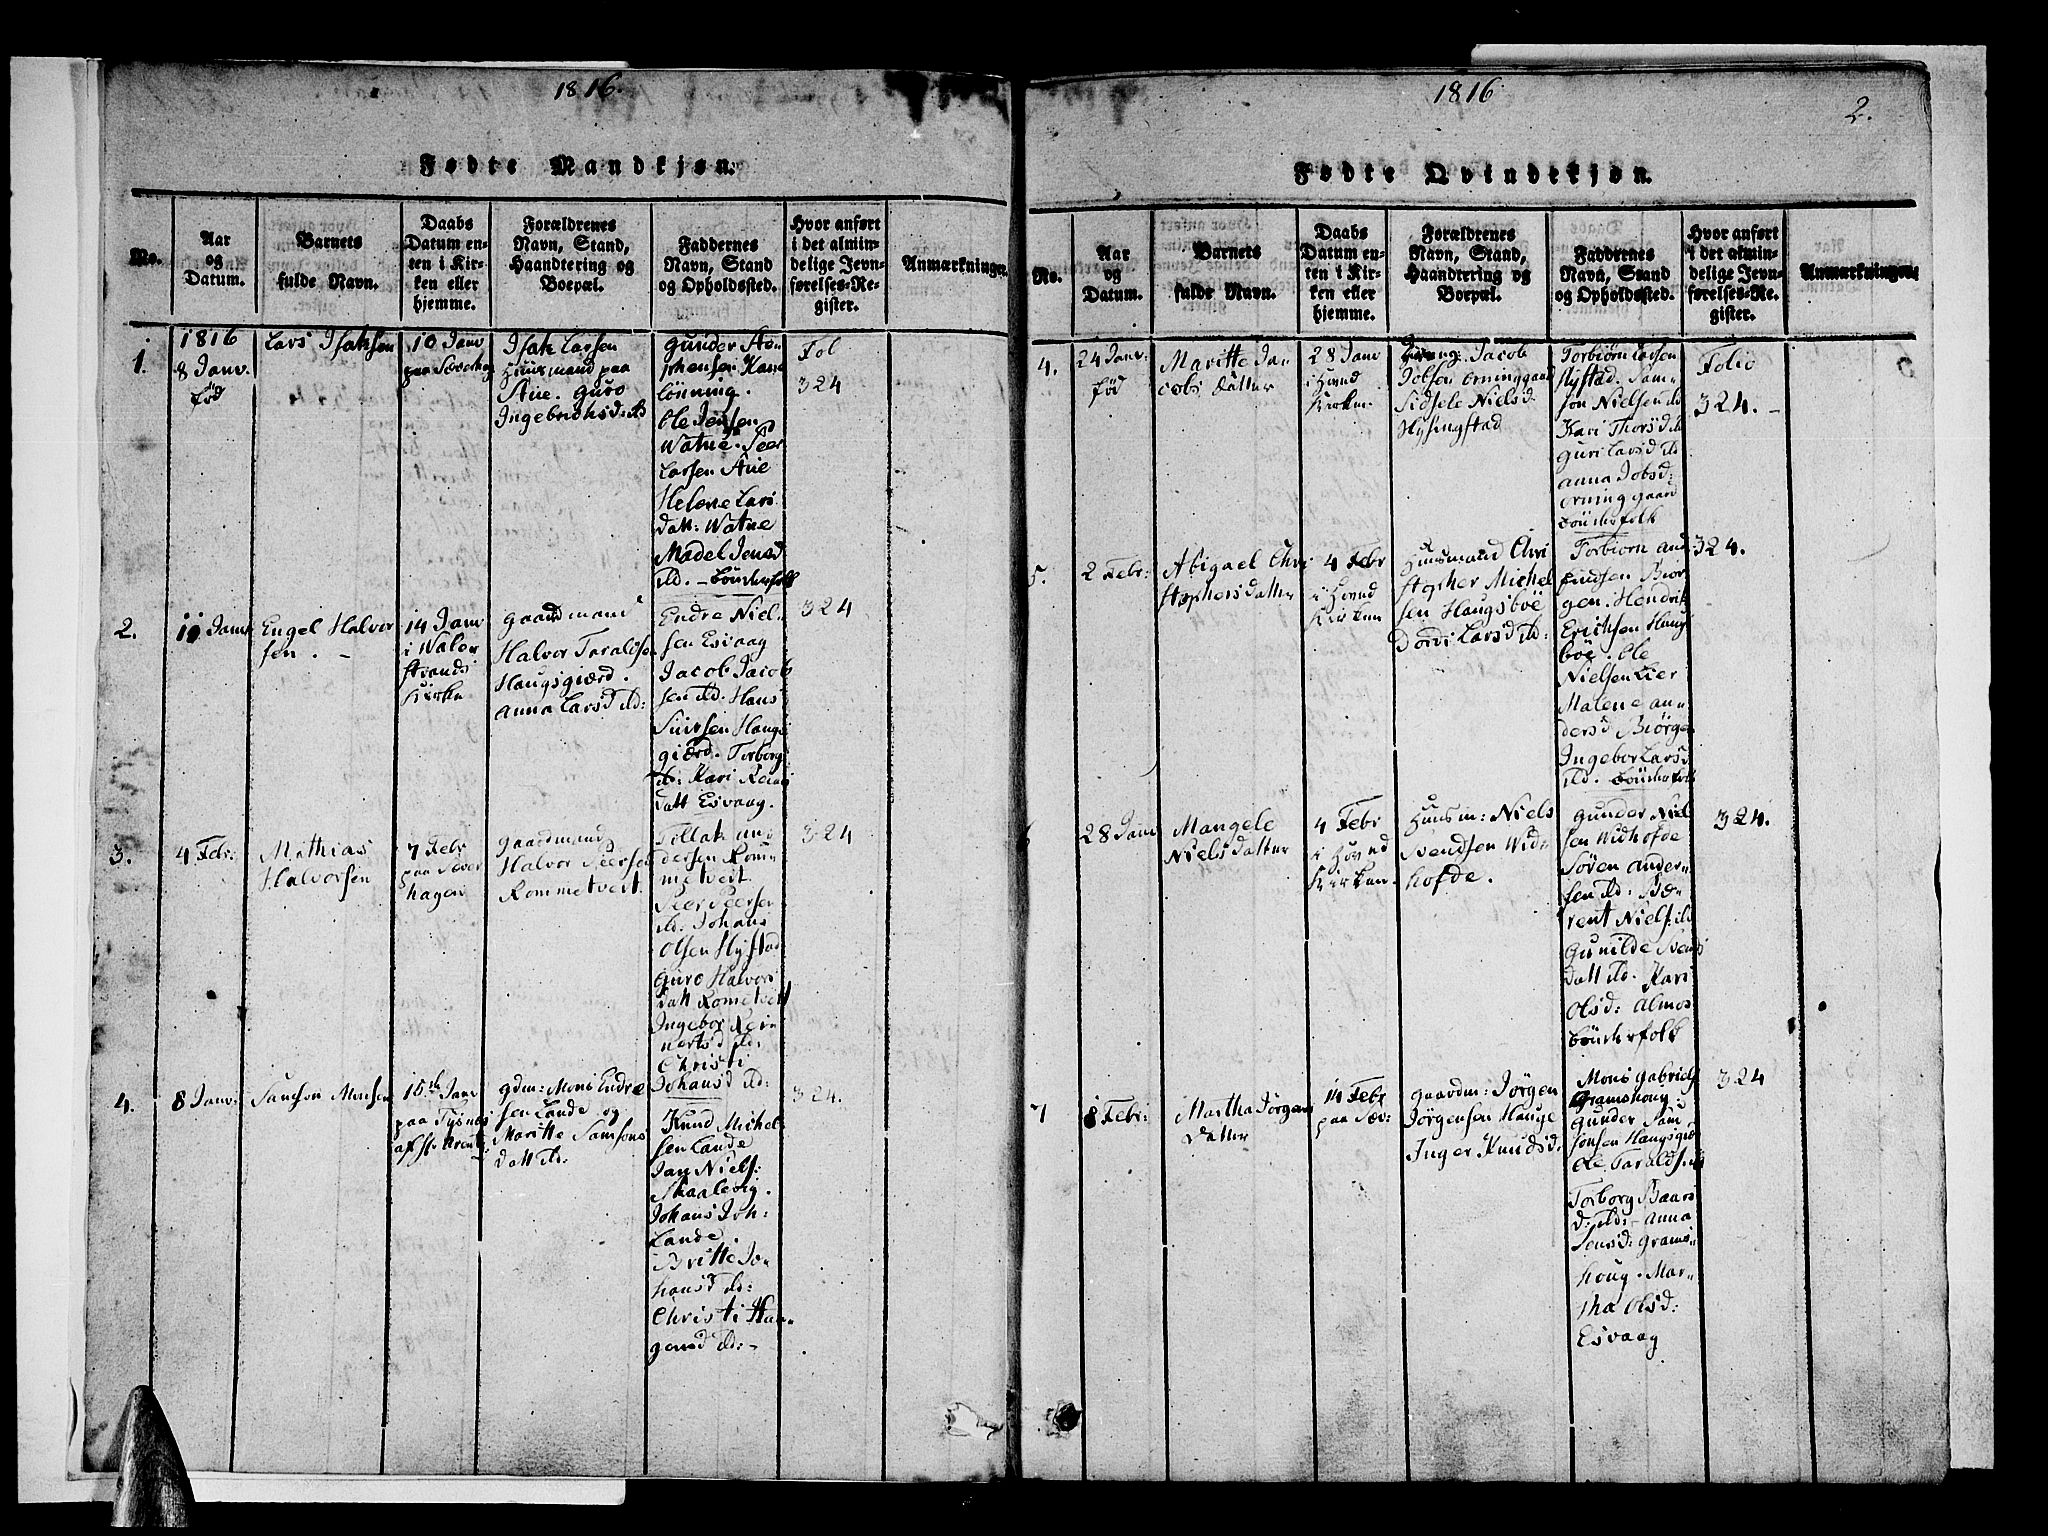 1816.
Fødte Mandkjøn.
No.
Aar
og
Datum.
Barnets
fulde Navn.
Daabs
Datum en-
ten i Kir-
ken eller
hjemme.
Forældrenes
Navn, Stand,
Haandtering og
Boepæl.
Faddernes
Navn, Stand
og Opholdssted.
Hvor anført
i det almin-
delige Jevn-
førelses-Re-
gister.
Anmærkninger.
1.
1816
8 Janv.
fød
Lars Isaksen
10 Janv
paa
Isak Larsen
Huusmand paa
Aue. Guro
Ingebrichsd: ibd
Gunder
Johansen
Lønning.
Ole Jensen
Watne. Peer
Larsen Aue
Helene Lars
datt: Watne
Madel Jensd
ibd. - Bønderfolk
Fol
324
2.
11 Janv
Engel Halvor
sen. -
14 Janv
i Waler
strands
Kirke
Gaardmand
Halvor Taraldsen
Haugsgiærd.
Anna Larsd ibd:
Endre Niel-
sen Esvaag
Jacob Jacob
sen ibd. Hans
Siursen Haugs
giærd. Torborg
ibd: Kari
datt Esvaag.
324
3.
4 Febr:
Mathias
Halvorsen
7 Febr
paa Sæver
hagen
Gaardmand
Halvor Peersen
Rommetveit.
Tollak An-
dersen Rom-
metveit
Peer Peersen
ibd: Johans
Olsen Hystad
Guro Halvors
datt Rometveit
Ingebor Rei-
nertsd ibd:
Christi
Johansd ibd:
324
4.
8 Janv:
Samson Monsen
15de Janv
paa Tysnes
af Hr.
Gdm: Mons Endre
sen Lande og
Maritte Samsons
datt ibd:
Knud Michel
sen Lande
Jan Niels:
Skaalevig.
Johans Joh:
Lande.
Britte Jo-
hansd ibd:
Christi Haa-
gensd ibd: -
324.
1816
2.
Fødte Qvindekjøn.
No.
Aar
og
Datum.
Barnets
fulde Navn.
Daabs
Datum en-
ten i Kir-
ken eller
hjemme.
Forældrenes
Navn, Stand,
Haandtering og
Boepæl.
Faddernes
Navn, Stand
og Opholdssted.
Hvor anført
i det almin-
delige Jevn-
førelses-Re-
gister.
Anmærkninger.
4.
24 Janv.
fød
Maritte Ja-
cobs datter
28 Janv
i Hovud
Kirken
Jacob
Jobsen Orninggaard
Sidsele Nielsd
Hysingstad
Torbiørn Larsen
Hystad. Sam-
son Nielsen ibd
Kari Thorsd ibd
Guri Larsd ibd
Anna Jobsd:
Orninggaard
Bønderfolk
Folio
324. -
5.
2 Febr:
Abigael Chri
stophersdatter
4 Febr
i Hovud
Kirken
Huusmand Chri
stopher Michel
sen Haugsbøe
Dorti Larsd ibd:
Torbiørn
Endsen Biør-
gen. Hendrik
Eriksen Haugs
bøe. Ole
Nielsen Lier
Malene An-
dersd Biørgen
Ingebor Larsd
ibd. Bønderfolk
324.
28 Janv
Mangele
Nielsdatter
4 Febr
i Hovud
Kirken.
Huusm: Niels
Svendsen Wid-
hofde.
Gunder Niel
sen Widhofde
Søren Ander-
sen ibd: Bæ-
rent Niels. ibd
Gunilde Svends
datt ibd. Kari
Olsd: Almos
Bønderfolk
324.
7
8 Febr:
Martha Jørgens
datter
14 Febr
paa Sæv:
Gaardm: Jørgen
Jørgensen Hauge
Inger Knudsd.
Mons Gabriels
Gramshoug:
Gunder Sam
sonsen Haugsgiæ
Ole Taralds.
Torborg Baars
d: ibd: - Anna
Jensd: Grams-
houg. Mar-
tha Olsd:
Esvaag
324